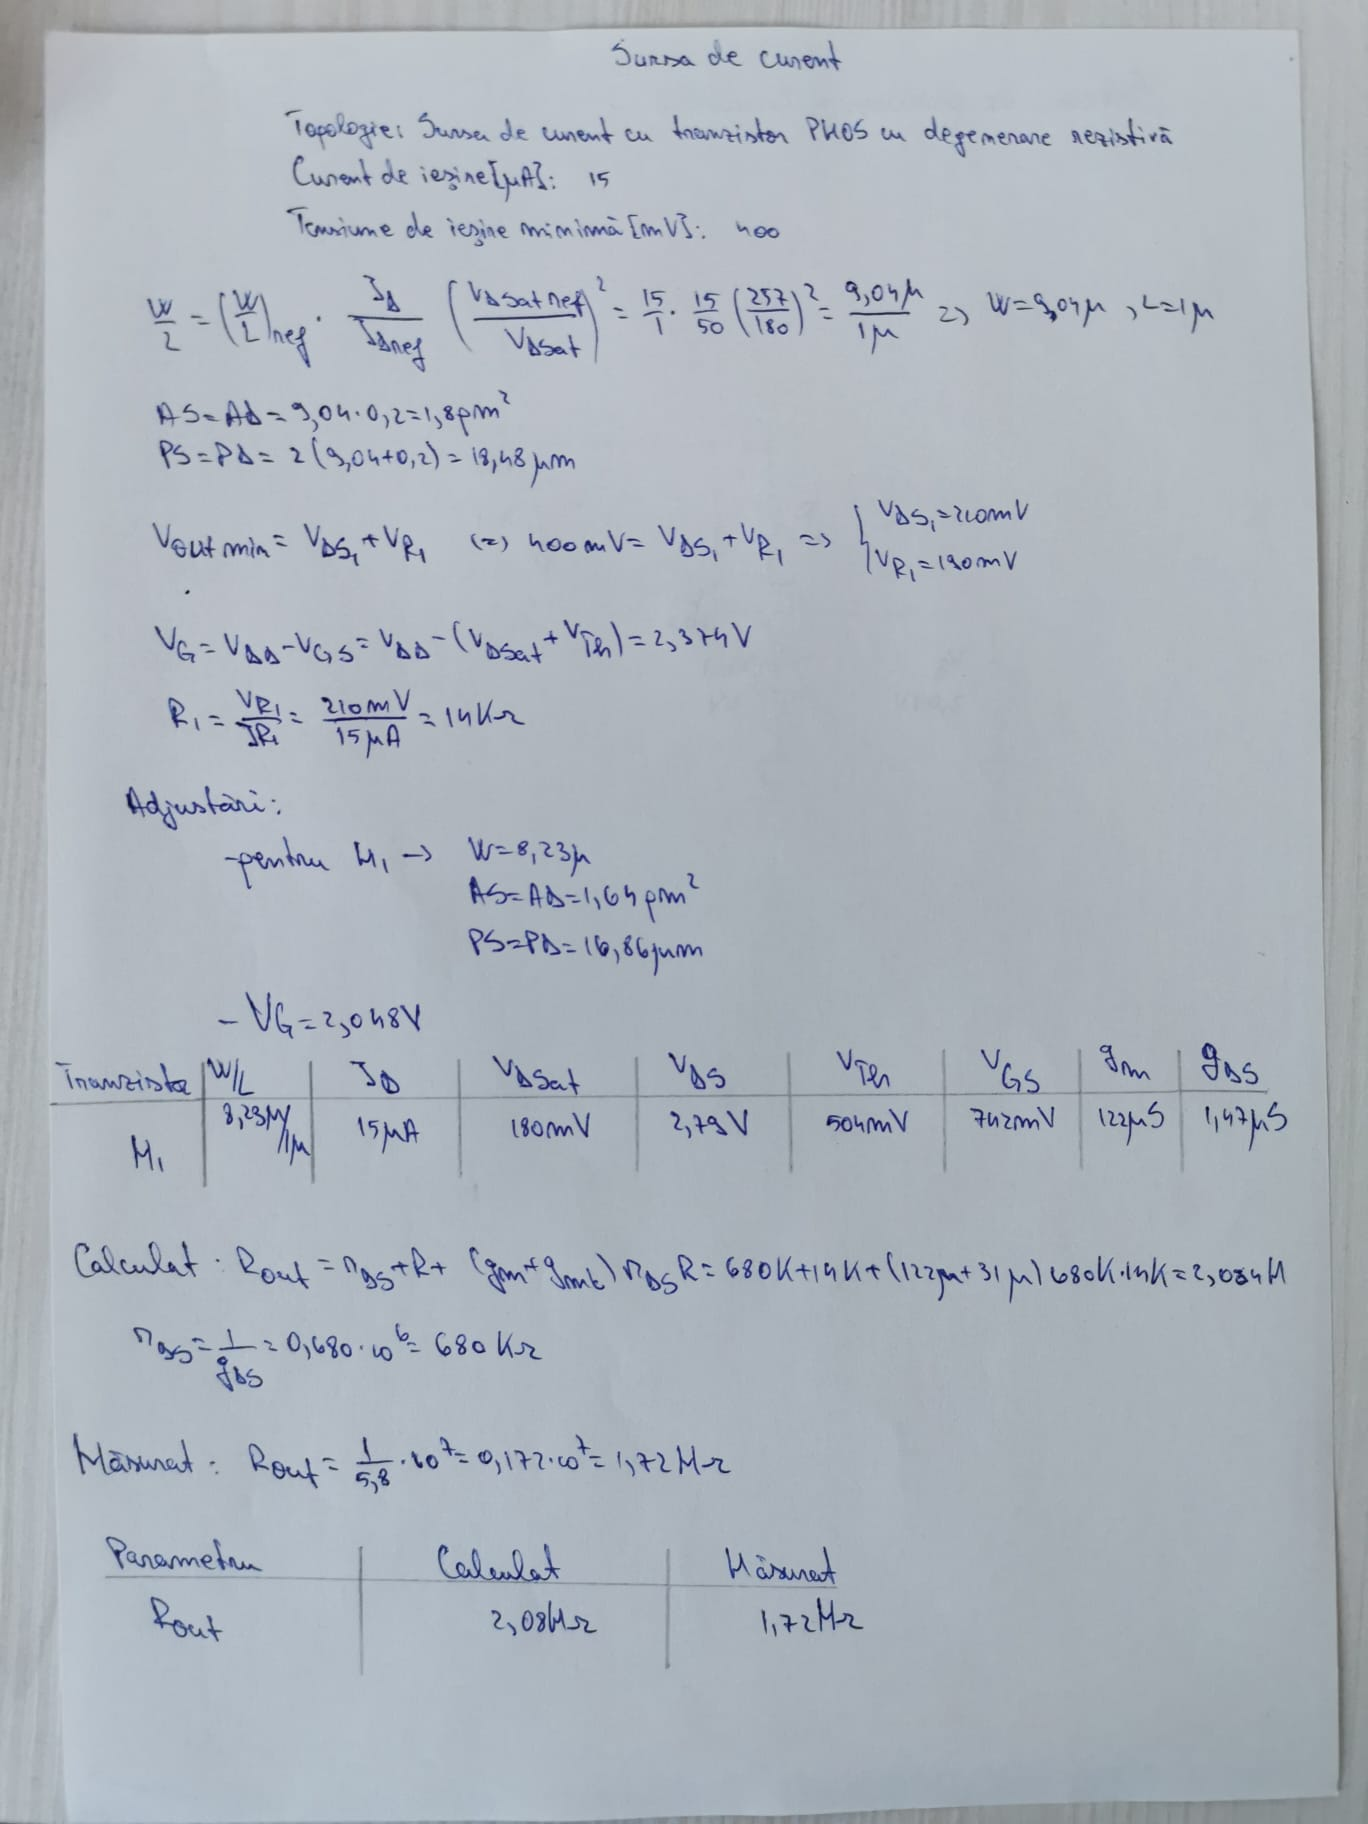 Sursa de curent
Topologie: Sursa de curent cu tranzistor PMOS cu degenerare rezistivă
Curent de ieșire [μA]: 15
Tensiune de ieșire minimă [mV]: 400
W/L = (W/L)ref · ID/IDref (VDSat ref/VDSat)² = 15/1 · 15/50 (257/180)² = 9,04μ/1μ => W=9,04μ, L=1μ
AS=AD=9,04·0,2=1,8pm²
PS=PD= 2(9,04+0,2)=18,48μm
Vout min = VDS1+VR1 (=) 400mV= VDS1+VR1 => { VDS1=210mV
VR1=190mV
VG= VDD-VGS= VDD-(VDSat+VTh)=2,374V
R1= VR1/IR1 = 210mV/15μA = 14KΩ
Adjustări:
-pentru M1 -> W=8,23μ
AS=AD=1,64pm²
PS=PD=16,86μm
- VG=2,048V
Tranzistor W/L ID VDSat VDS VTh VGS gm gDS
M1 8,23μ/1μ 15μA 180mV 2,79V 504mV 742mV 122μS 1,47μS
Calculat: Rout = rDS+R+ (gm+gmb) rDS R= 680K+14K+(122μ+31μ) 680K·14K=2,084M
rDS= 1/gDS = 0,680·10⁶= 680 KΩ
Măsurat: Rout= 1/5,8 ·10⁷= 0,172·10⁷= 1,72MΩ
Parametru Calculat Măsurat
Rout 2,08MΩ 1,72MΩ